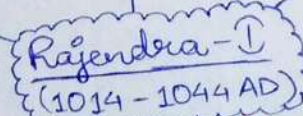 Rajendra-I
(1014-1044 AD)